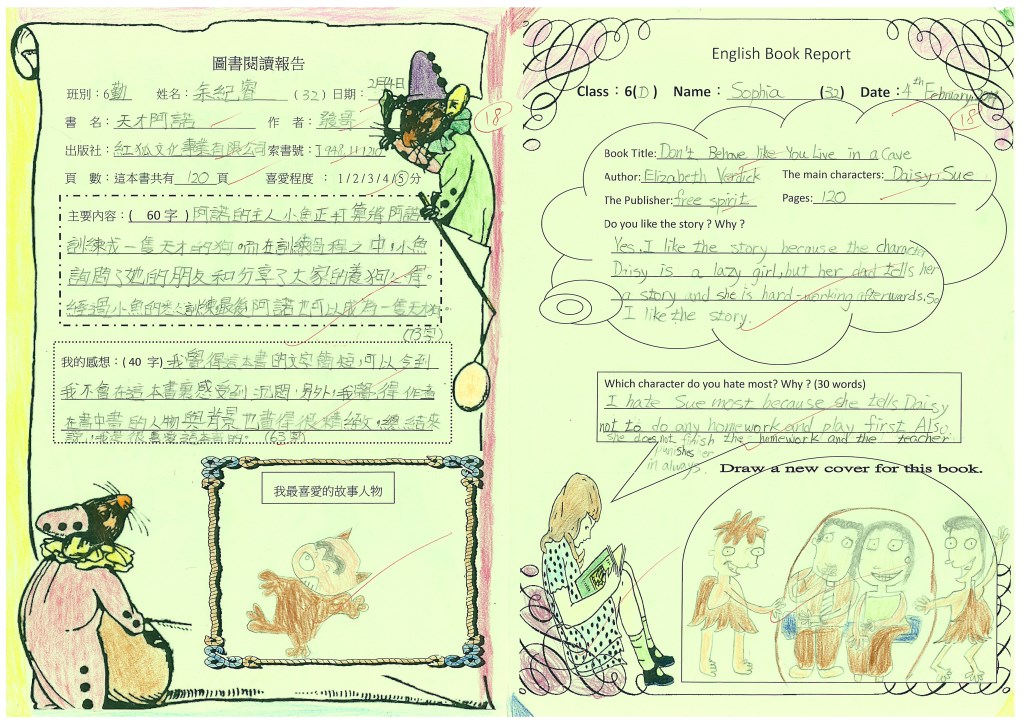 圖書閱讀報告
班別：6勤 姓名：余紀睿 (32) 日期：2月4日
18
書 名：天才阿諾 作 者：
出版社：紅狐文化事業有限公司 索書號：
頁 數：這本書共有 120 頁 喜愛程度：1/2/3/4/5分
主要內容：( 60字 ) 阿諾的主人小魚正打算將阿諾
訓練成一隻天才的狗。而在訓練過程之中，小魚
詢問了她的朋友和分享了大家的養狗心得。
經過小魚的悉心訓練最後阿諾也可以成為一隻天才狗。
(73字)
我的感想：( 40 字) 我覺得這本書的文字簡短，可以令到
我不會在這本書裏感受到沉悶，另外，我覺得作者
在書中畫的人物與背景也畫得很精緻，總結來
說，我是很喜愛這本書的。 (63字)
我最喜愛的故事人物
English Book Report
Class：6(D) Name：Sophia (32) Date：4th February,
18
Book Title: Don't Behave like You Live in a Cave
Author: Elizabeth Verdick The main characters: Daisy, Sue
The Publisher: free spirit Pages: 120
Do you like the story ? Why ?
Yes, I like the story because the character
Daisy is a lazy girl, but her dad tells her
a story and she is hard-working afterwards. So
I like the story.
Which character do you hate most? Why ? (30 words)
I hate Sue most because she tells Daisy
not to do any homework and play first. Also,
she does not finish the homework and the teacher
punishes her
in always.
Draw a new cover for this book.